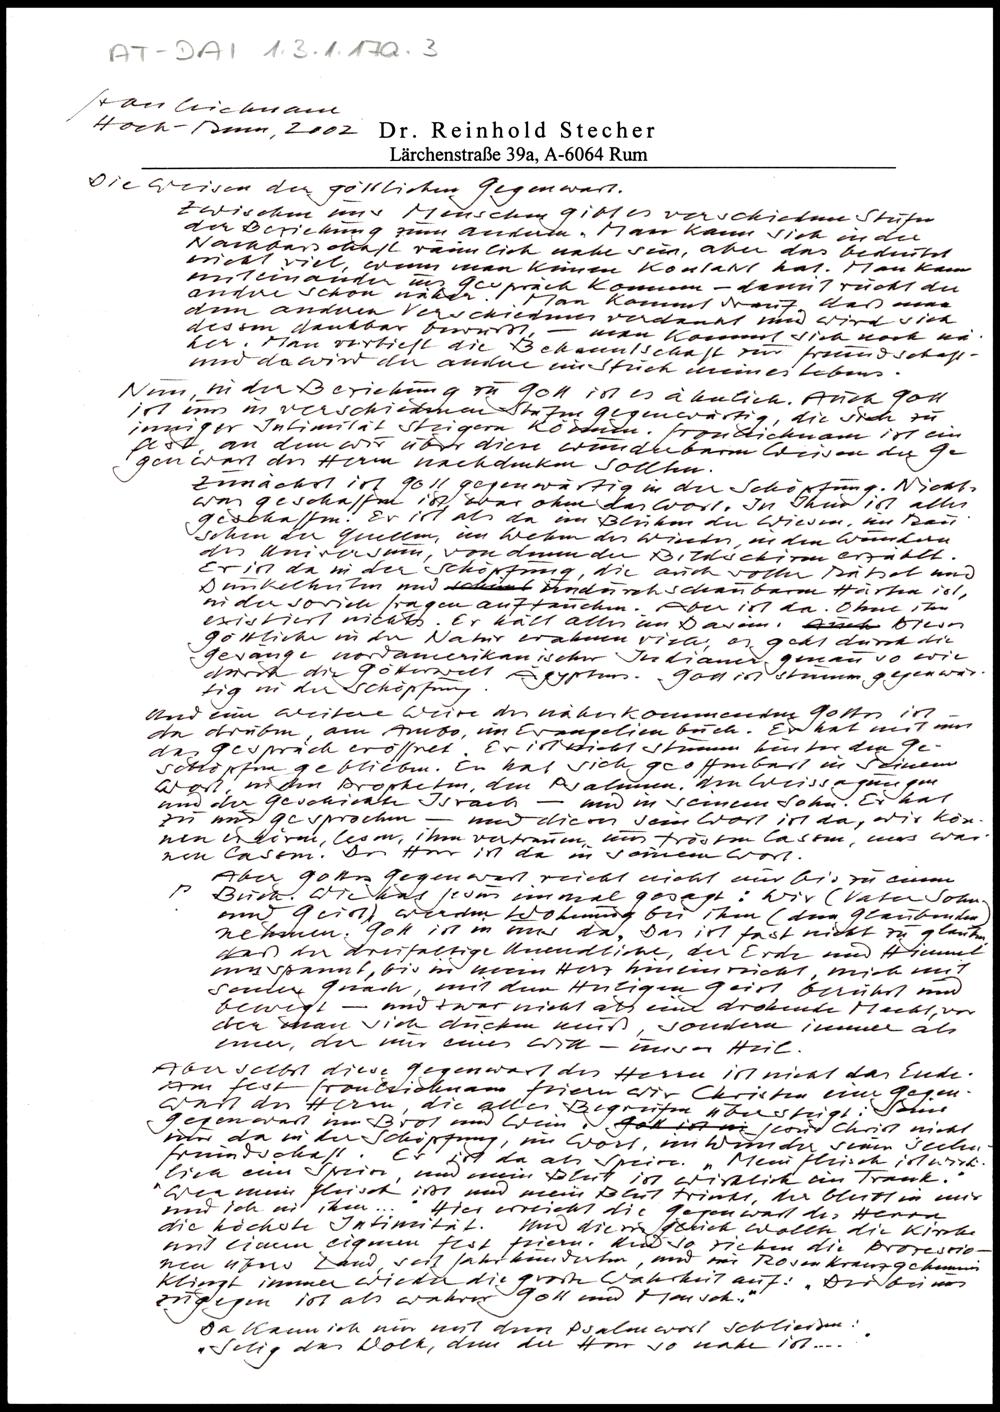 AT-DAI 1.3.1.170.3
Fronleichnam
Hoch-Rum, 2002
Dr. Reinhold Stecher
Lärchenstraße 39a, A-6064 Rum
Die Weisen der göttlichen Gegenwart.
Zwischen uns Menschen gibt es verschiedene Stufen
der Beziehung zum anderen. Man kann sich in der
Nachbarschaft räumlich nahe sein, aber das bedeutet
nicht viel, wenn man keinen Kontakt hat. Man kann
miteinander ins Gespräch kommen – damit rückt der
andre schon näher. Man kommt drauf, daß man
dem anderen Verschiedenes verdankt und wird sich
dessen dankbar bewußt, – man kommt sich noch nä-
her. Man vertieft die Bekanntschaft zur Freundschaft –
und da wird der andre ein Stück meines Lebens.
Nun, in der Beziehung zu Gott ist es ähnlich. Auch Gott
ist uns in verschiedenen Stufen gegenwärtig, die sich zu
inniger Intimität steigern können. Fronleichnam ist ein
Fest, an dem wir über diese wunderbaren Weisen der Ge-
genwart des Herrn nachdenken sollten.
Zunächst ist Gott gegenwärtig in der Schöpfung. Nichts
was geschaffen ist, war ohne das Wort. In Ihm ist alles
geschaffen. Er ist also da im Blühen der Wiesen, im Rau-
schen der Quellen, im Wehen des Windes, in den Wundern
des Universum, von denen der Bildschirm erzählt.
Er ist da in der Schöpfung, die auch voller Rätsel und
Dunkelheiten und scheint undurchschaubaren Härten ist,
in der soviele Fragen auftauchen. Aber ist da. Ohne ihn
existiert nichts. Er hält alles im Dasein. Auch Dieses
Göttliche in der Natur erahnen viele, es geht durch die
Gesänge nordamerikanischer Indianer genau so wie
durch die Götterwelt Ägyptens. Gott ist stumm gegenwär-
tig in der Schöpfung.
Und eine weitere Weise des näherkommenden Gottes ist
da drüben, am Ambo, im Evangelienbuch. Er hat mit uns
das Gespräch eröffnet. Er ist nicht stumm hinter den Ge-
schöpfen geblieben. Er hat sich geoffenbart in seinem
Wort, in den Propheten, den Psalmen, den Weissagungen
und der Geschichte Israels – und in seinem Sohn. Er hat
zu uns gesprochen – und dieses sein Wort ist da, wir kön-
nen es hören, lesen, ihm vertrauen, uns trösten lassen, uns war-
nen lassen. Der Herr ist da in seinem Wort.
Aber Gottes Gegenwart reicht nicht nur bis zu einem
Buch. Wie hat Jesus einmal gesagt: Wir (Vater Sohn
und Geist) werden Wohnung bei ihm (dem Glaubenden)
nehmen. Gott ist in uns da. Das ist fast nicht zu glauben,
daß der dreifaltige Unendliche, der Erde und Himmel
umspannt, bis in mein Herz hineinreicht, mich mit
seiner Gnade, mit dem Heiligen Geist berührt und
bewegt – und zwar nicht als eine drohende Macht, vor
der man sich ducken muß, sondern immer als
einer, der nur eines will – unser Heil.
Aber selbst diese Gegenwart des Herrn ist nicht das Ende.
Am Fest Fronleichnam feiern wir Christen eine Gegen-
wart des Herrn, die alles Begreifen übersteigt: Seine
Gegenwart im Brot und Wein. Gott ist in Jesus Christ nicht
nur da in der Schöpfung, im Wort, im Wunder seiner Seelen-
freundschaft. Er ist da als Speise. „Mein Fleisch ist wirk-
lich eine Speise, und mein Blut ist wirklich ein Trank."
"Wer mein Fleisch ißt und mein Blut trinkt, der bleibt in mir
und ich in ihm..." Hier erreicht die Gegenwart des Herrn
die höchste Intimität. Und dieses wollte die Kirche
mit einem eigenen Fest feiern. Und so ziehen die Prozessio-
nen übers Land, seit Jahrhunderten, und im Rosenkranzgeheimnis
klingt immer wieder die große Wahrheit auf: „Der bei uns
zugegen ist als wahrer Gott und Mensch."
Da kann ich nur mit dem Psalmwort schließen:
„Selig das Volk, dem der Herr so nahe ist...."